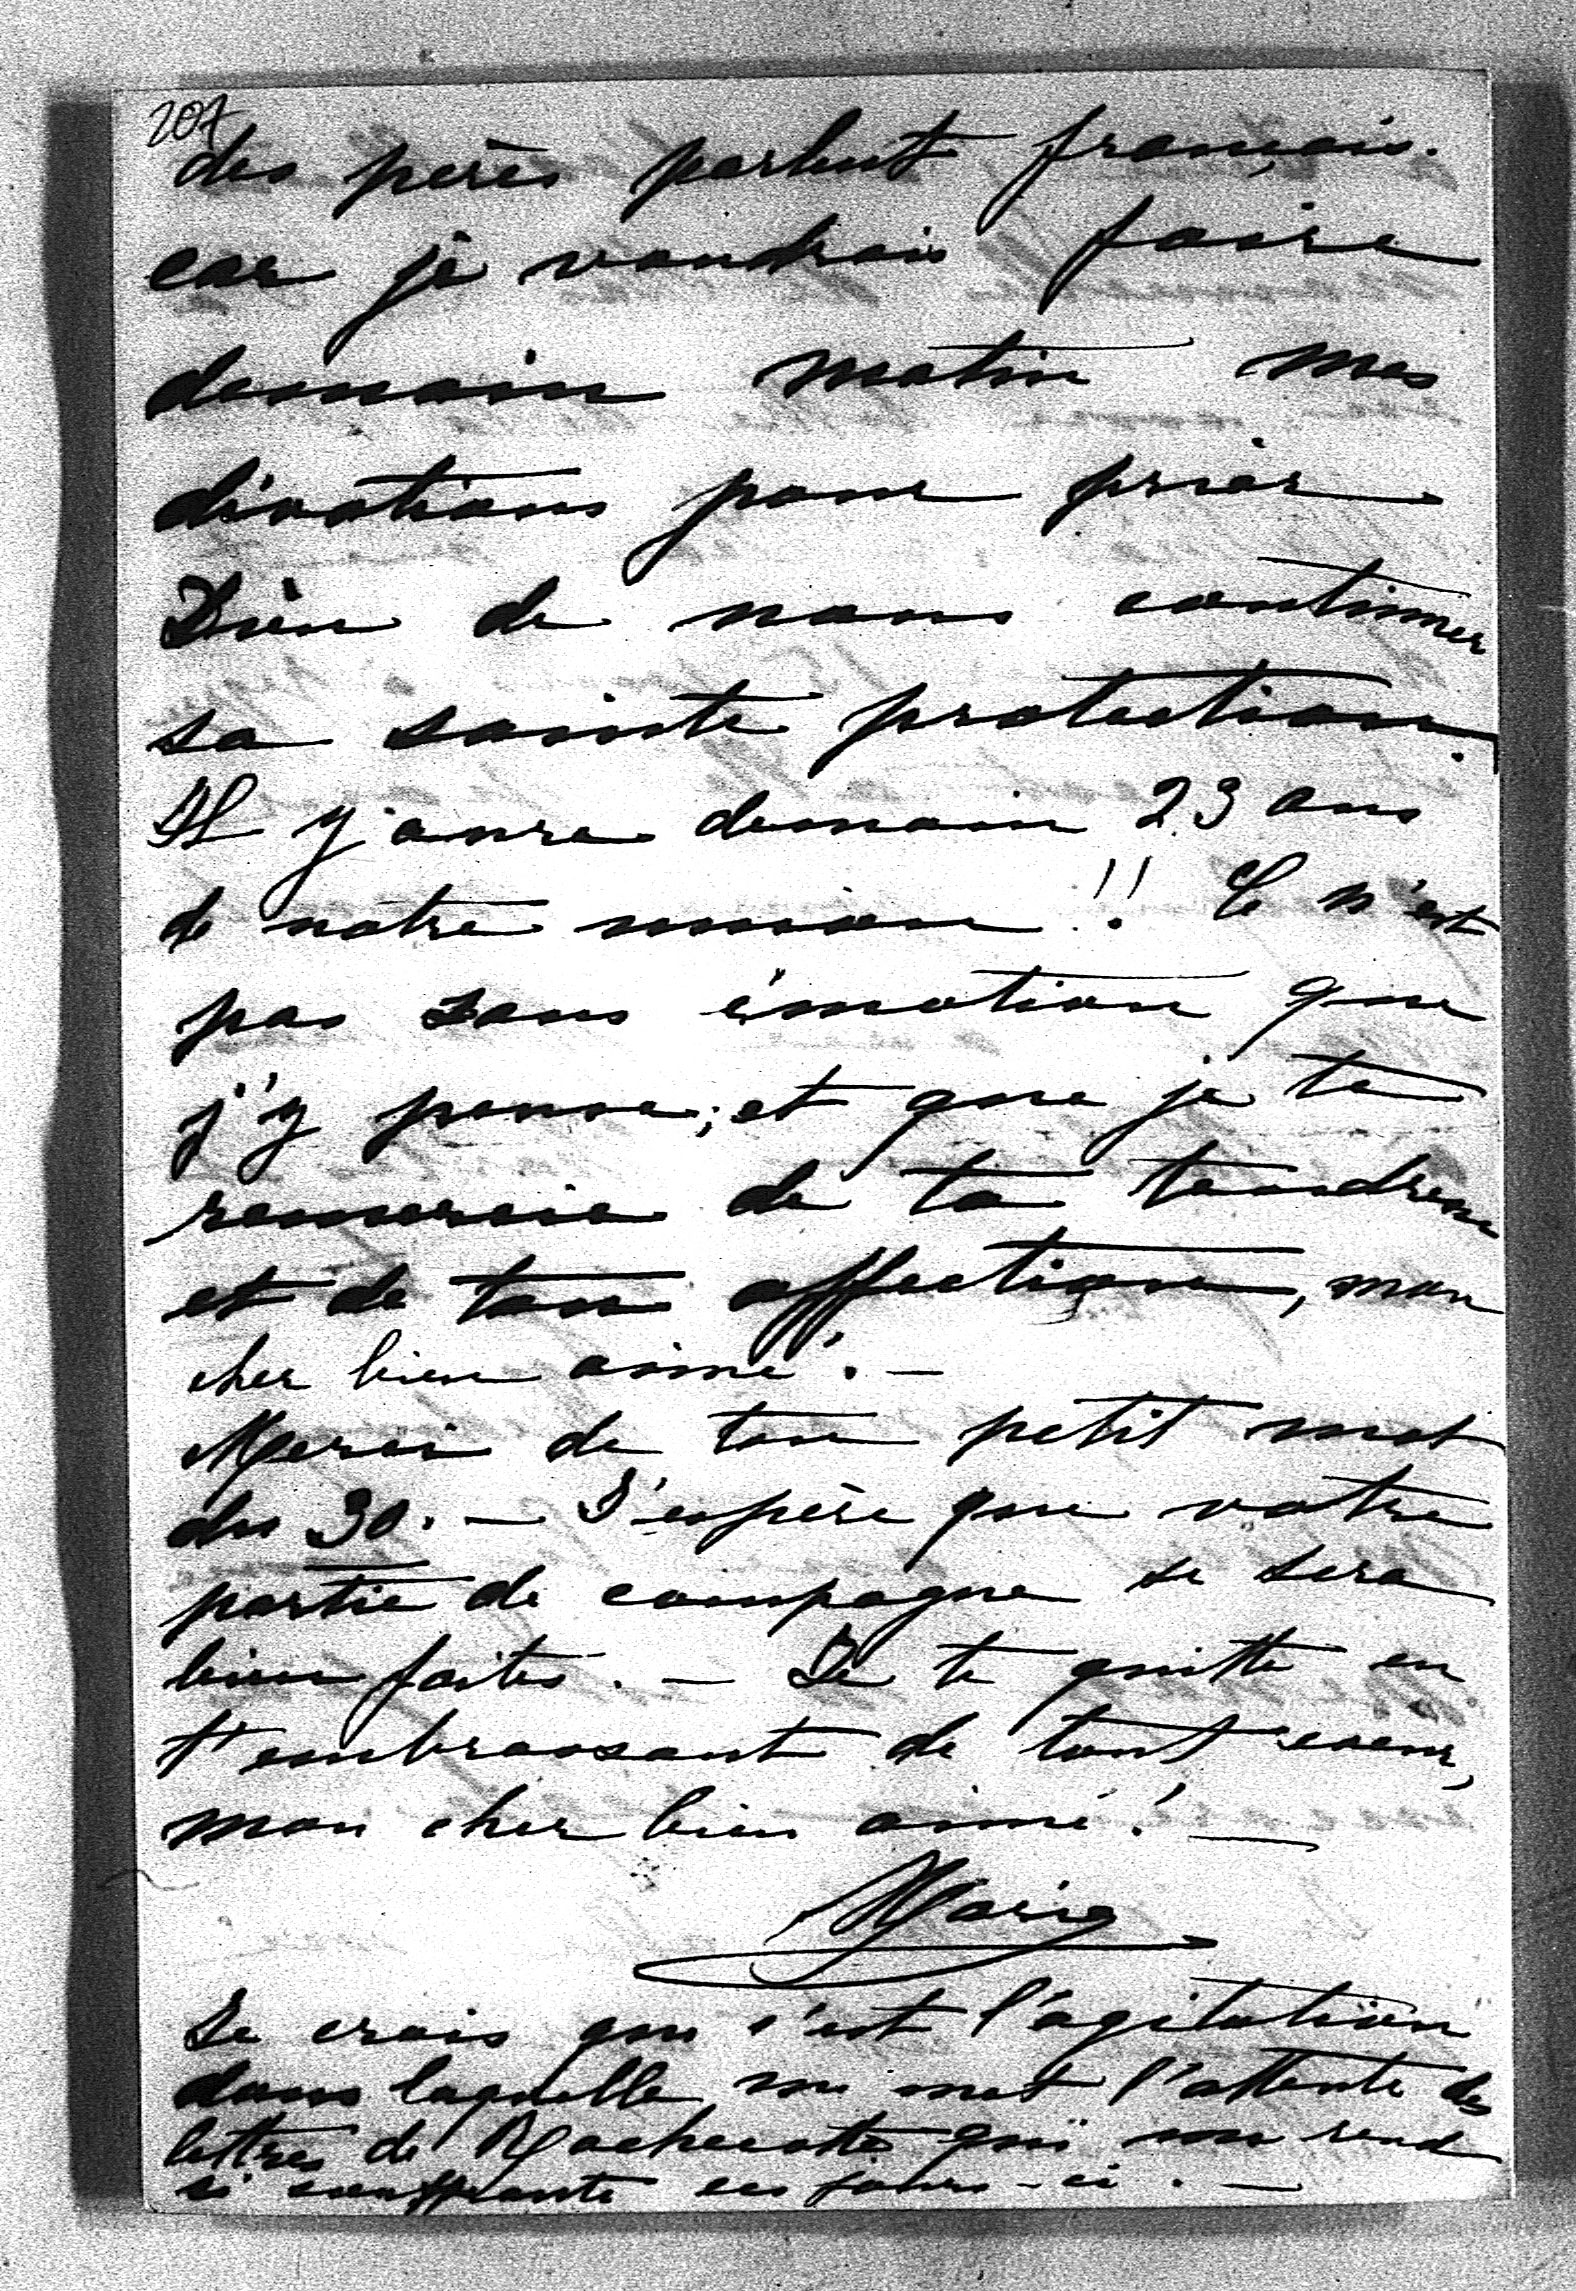 207
des pères parlent français.
car je voudrais faire
demain matin mes
dévotions pour prier
Dieu de nous continuer
sa sainte protection.
Il y aura demain 23 ans
de notre union !! Ce n'est
pas sans émotion que
j'y pense; et que je te
remercie de ta tendresse
et de ton affection, mon
cher bien aimé. —
Merci de ton petit mot
du 30. — J'espère que votre
partie de campagne se sera
bien faite. — Je te quitte en
t'embrassant de tout cœur,
mon cher bien aimé! —
Marie
Je crois que c'est l'agitation
dans laquelle me met l'attente des
lettres de qui me rend
si souffrante ces jours-ci. —